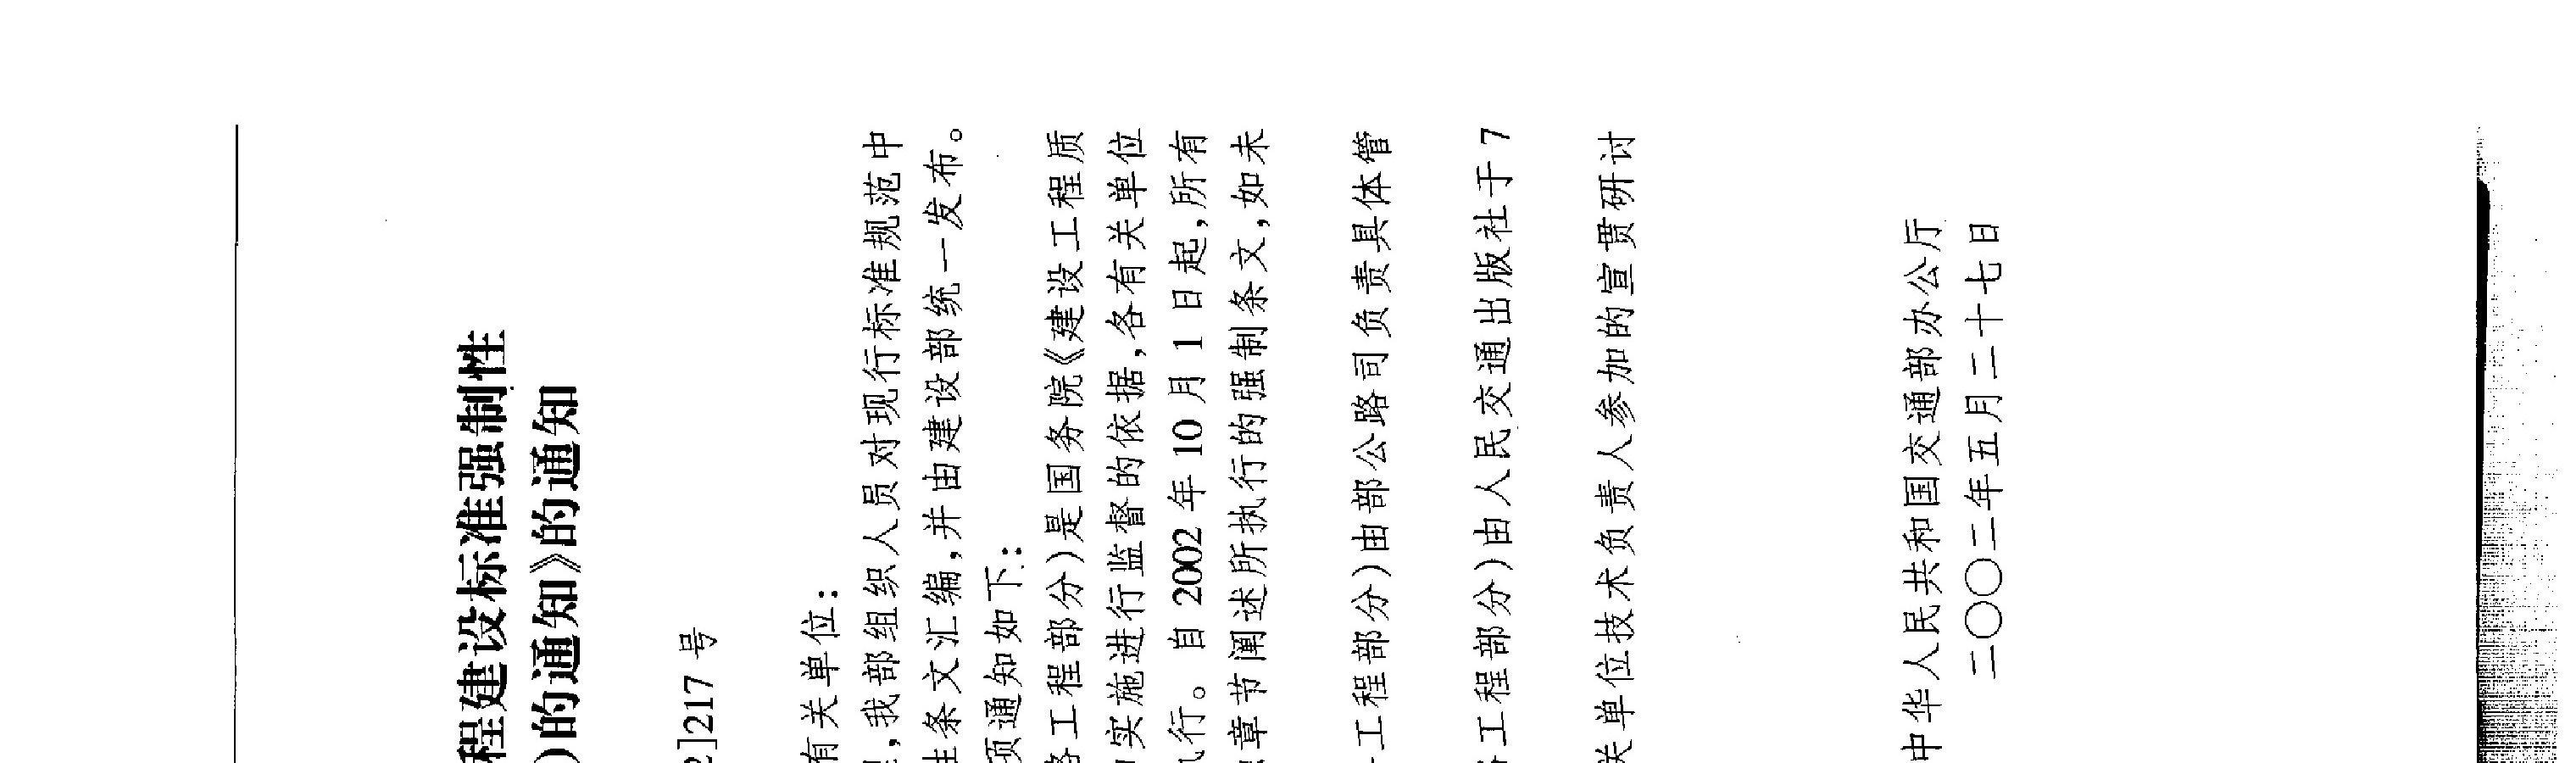 程建设标准强制性
)的通知》的通知
2]217 号
有关单位:
,我部组织人员对现行标准规范中
条文汇编,并由建设部统一发布。
项通知如下:
路工程部分)是国务院《建设工程质
实施进行监督的依据,各有关单位
执行。自 2002 年 10 月 1 日起,所有
章节阐述所执行的强制条文,如未
工程部分)由部公路司负责具体管
工程部分)由人民交通出版社于 7
关单位技术负责人参加的宣贯研讨
中华人民共和国交通部办公厅
二〇〇二年五月二十七日